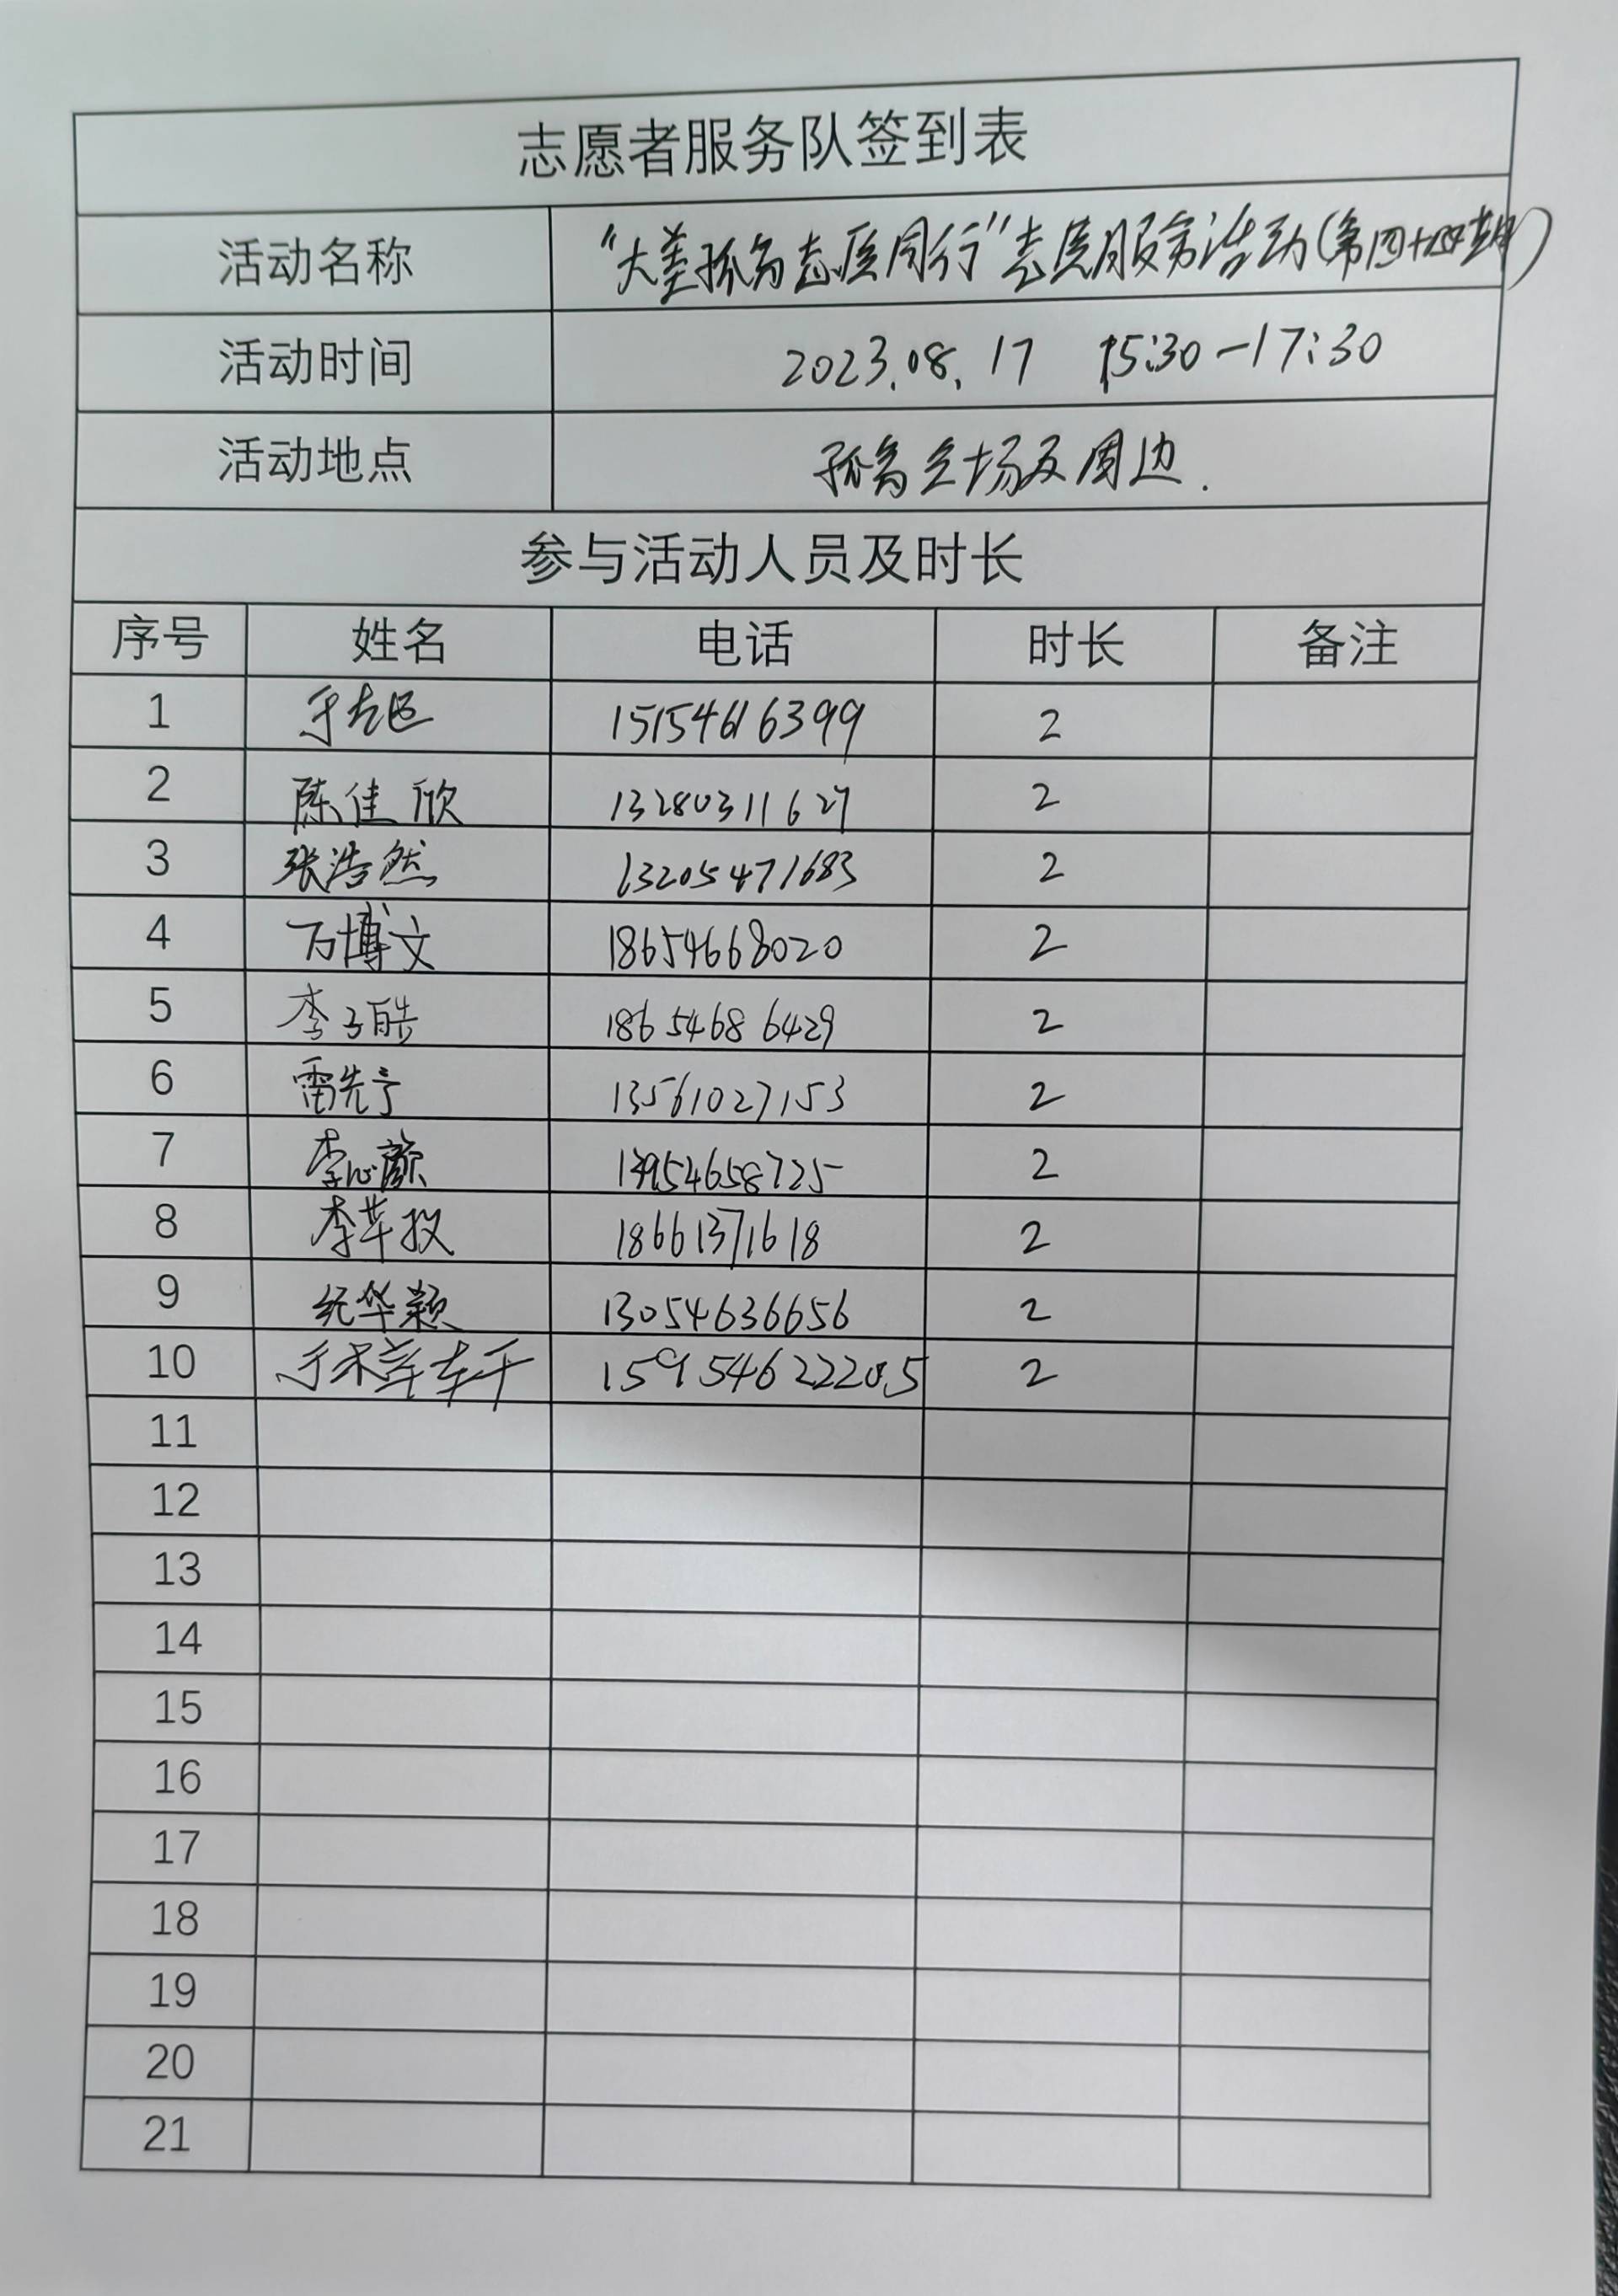 志愿者服务队签到表
活动名称 "大美孤岛志愿同行"志愿服务活动(第四十四期)
活动时间 2023.08.17 15:30-17:30
活动地点 孤岛会场及周边.
参与活动人员及时长
序号 姓名 电话 时长 备注
1 15154616399 2
2 陈佳欣 13280311627 2
3 张浩然 13205471683 2
4 万博文 18654668020 2
5 李子皓 18654686429 2
6 雷先亨 13561027153 2
7 李心颜 13954658725 2
8 18661371618 2
9 纪华颖 13054636656 2
10 2
11
12
13
14
15
16
17
18
19
20
21